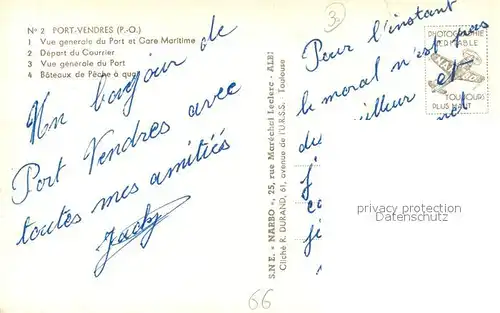 Nº 2 PORT-VENDRES (P.-O.)
1 Vue generale du Port et Gare Maritime
2 Départ du Courrier
3 Vue générale du Port
4 Bâteaux de Pêche à quai
Un bonjour de
Port Vendres avec
toutes mes amitiés
Jacky
S.N.E. « NARBO », 25, rue Maréchal Leclerc - ALBI
Cliché R. DURAND, 61, avenue de l'U.R.S.S. Toulouse
3.
Pour l'instant
le moral n'est pas
et
PHOTOGRAPHIE
VERITABLE
TOUJOURS
PLUS HAUT
privacy protection
Datenschutz
66